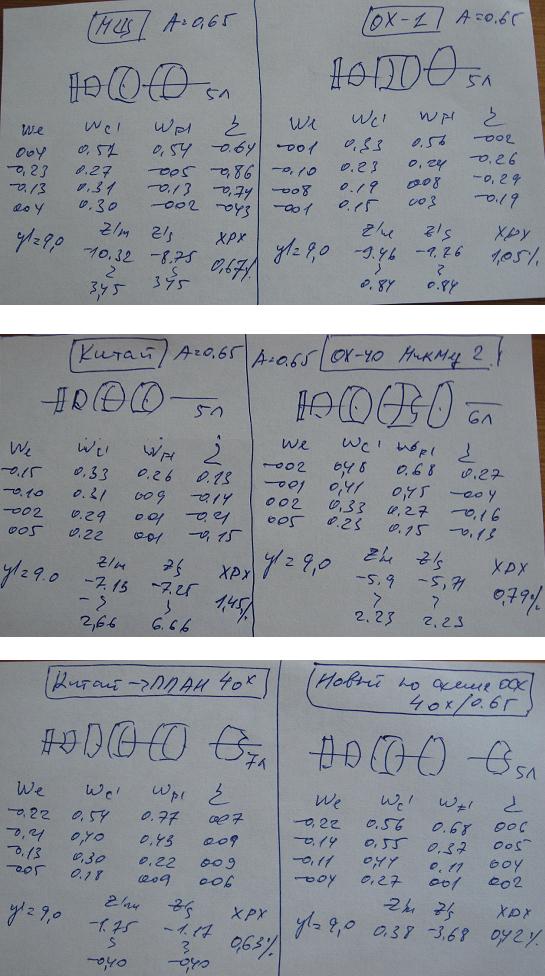 МЩ A=0,65
5л
We Wc' WF' Σ
004 0,51 0,54 -0,64
-0,23 0,27 -005 -0,86
-0,13 0,31 -0,13 -0,74
004 0,30 -002 -043
y'=9,0 Z'm Z's ХРХ
-10,32 -8,75 0,67%
3,45 3,45
ОХ-1 A=0,65
5л
We Wc' WF' Σ
-001 0,33 0,56 -002
-0,10 0,23 0,24 -0,26
-008 0,19 008 -0,29
-001 0,15 003 -0,19
y'=9,0 Z'm Z's ХРХ
-9.46 -9.26 1,05%
0.84 0.84
Китай A=0.65
5л
We Wc' WF' Σ
-0,15 0.33 0.26 0.13
-0,10 0.31 009 -0,14
-002 0.29 001 -0,21
005 0.22 001 -0,15
y'=9.0 Z'm Z's ХРХ
-7.13 -7.25 1,45%
2,66 6.66
A=0.65 ОХ-40 МикМед 2
6л
We Wc' WF' Σ
-002 0,48 0.68 0.27
-001 0,41 0,45 -004
002 0.33 0.27 -0,16
005 0.23 0.15 -0,13
y'=9,0 Z'm Z's ХРХ
-5,9 -5,71 0,79%
2.23 2.23
Китай → ПЛАН 40x
7л
We Wc' WF' Σ
-0,22 0,54 0.77 007
-0,21 0,40 0,43 009
-0,13 0,30 0.22 009
-005 0.18 009 006
y'=9,0 Z'm Z's ХРХ
-1.75 -1.17 0,63%
-0,40 -0,40
Новый по схеме
40x/0.65
5л
We Wc' WF' Σ
-0,22 0,56 0.68 006
-0,14 0,55 0.37 005
-0,11 0,44 0.11 004
-004 0,27 001 002
y'=9,0 Z'm Z's ХРХ
0,38 -3,68 0,42%